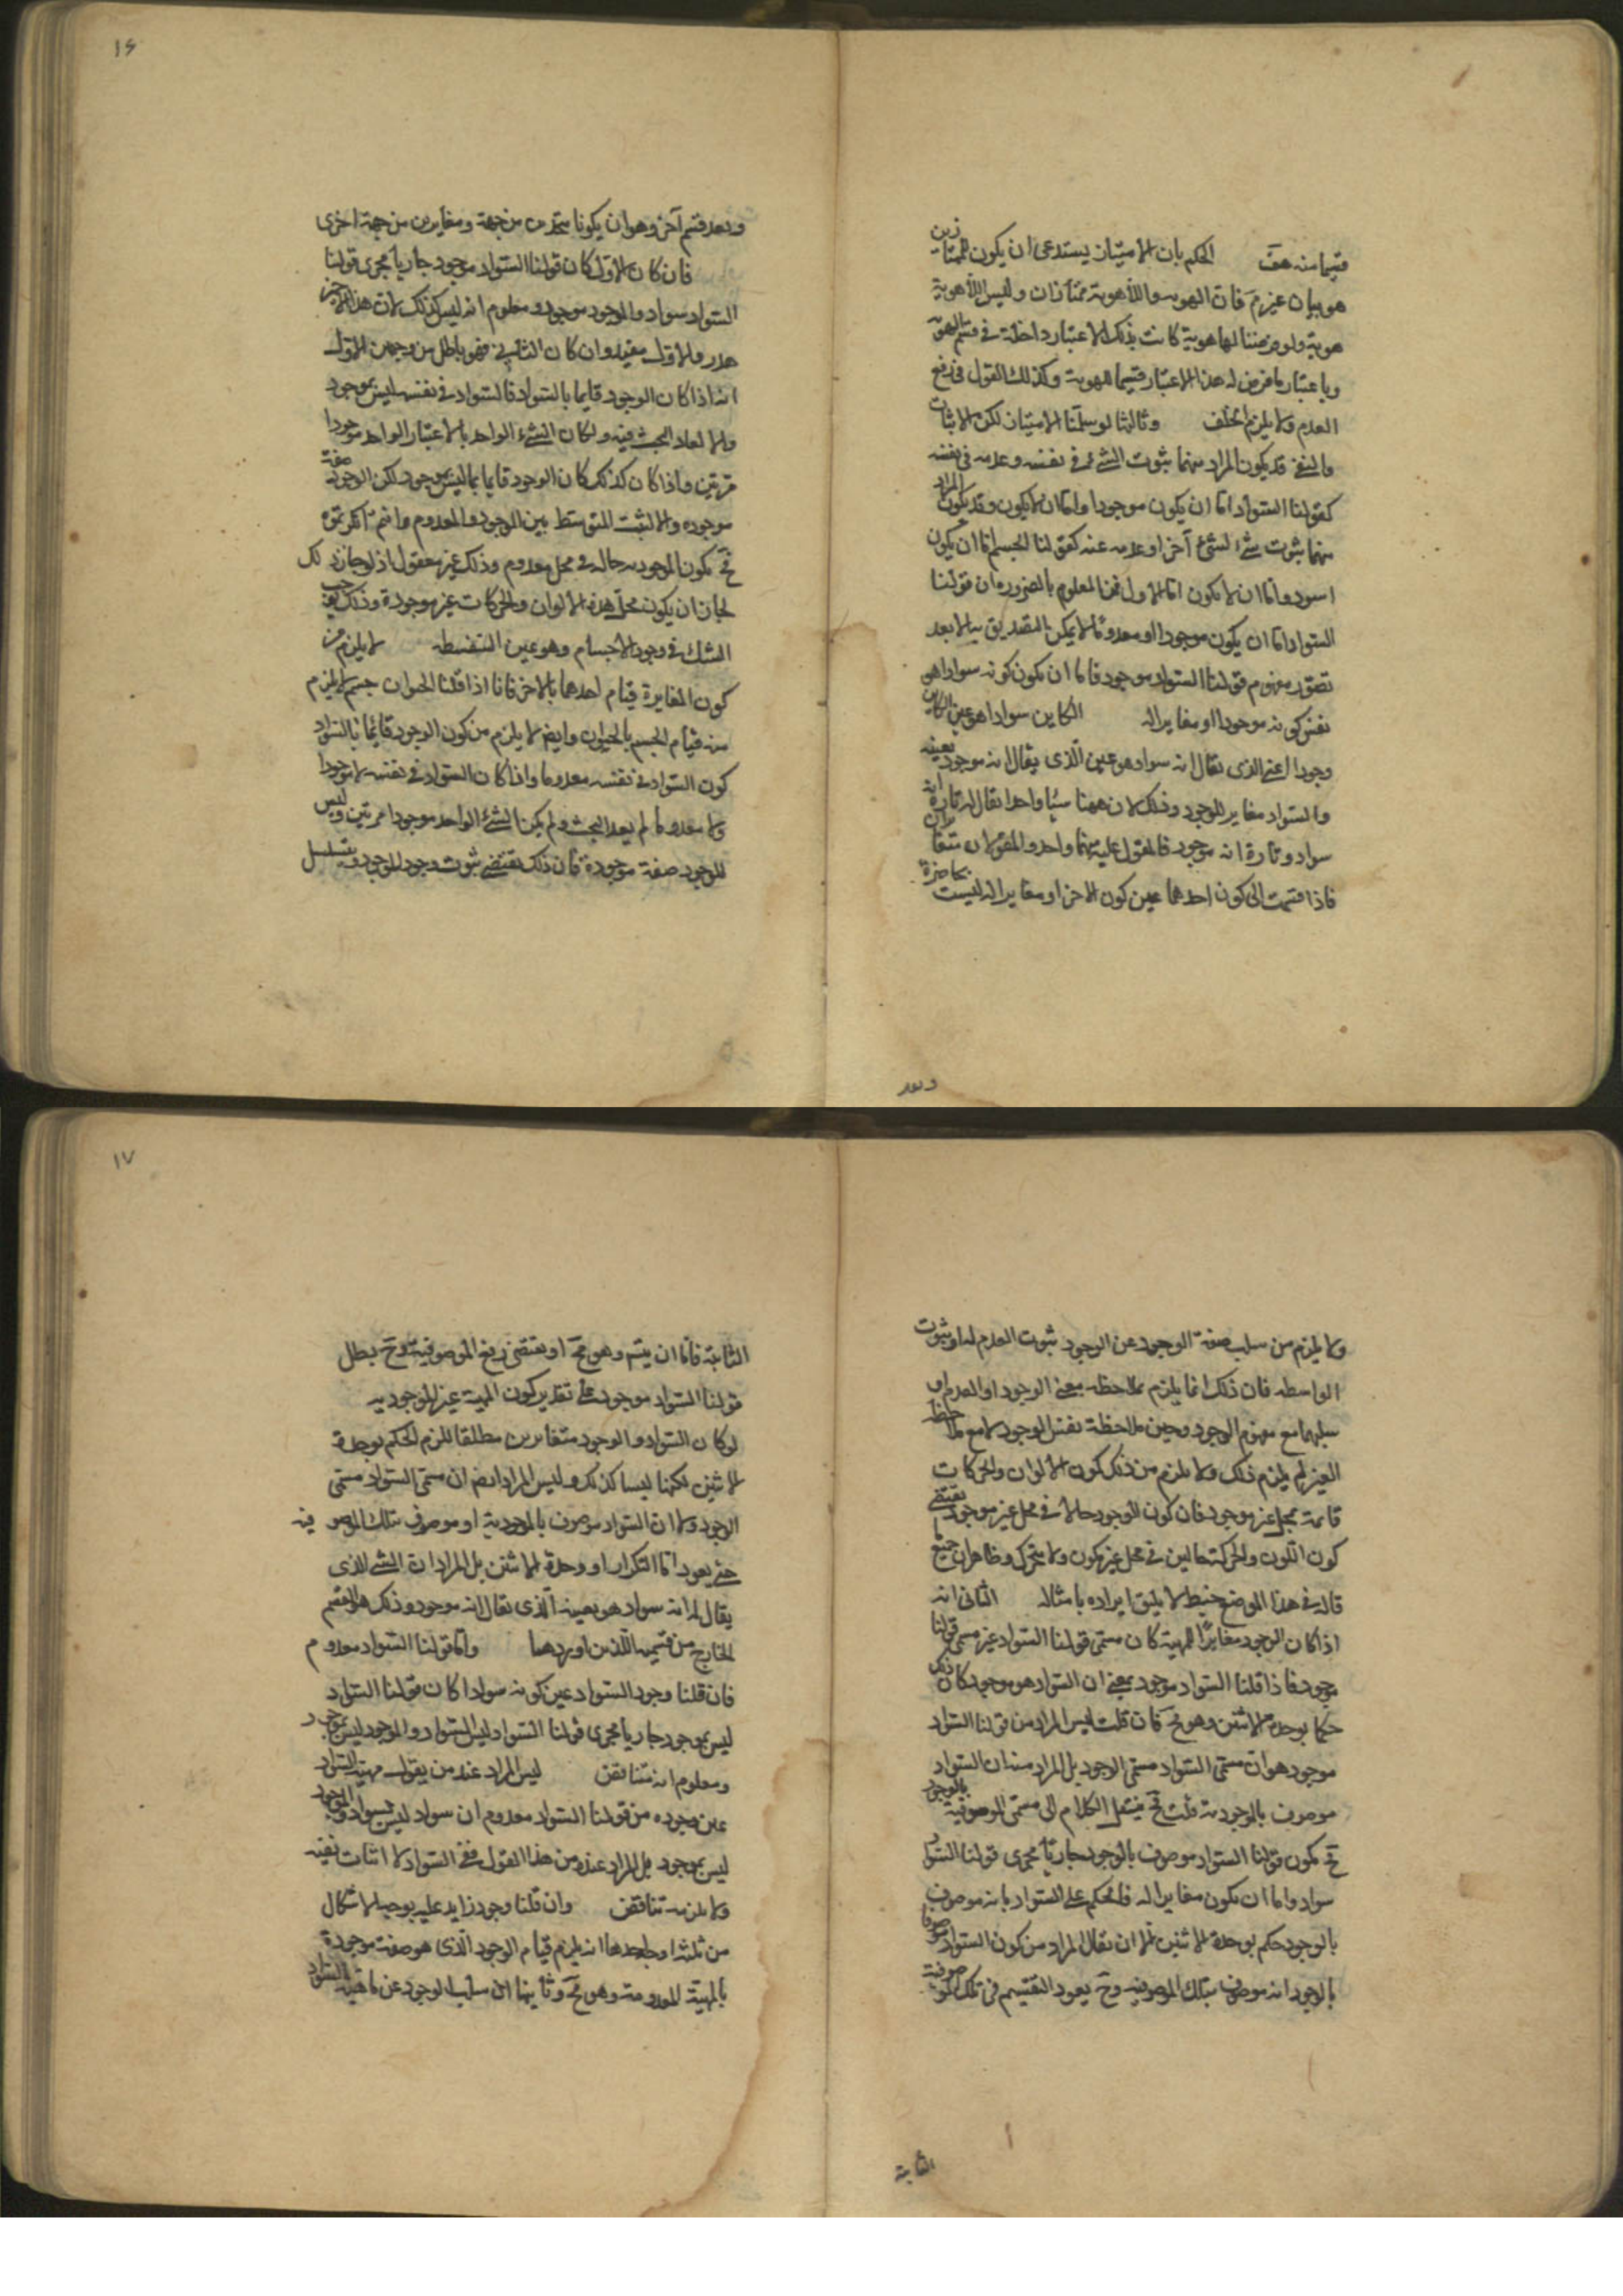 قسيما منه هف الحكم بان الامتياز يستدعى ان يكون للممتازين
هويتان غير مَ فان الهوية واللاهوية ممتازان وليس للاهوية
هوية ولو فرضنا لها هوية كانت بذلك الاعتبار داخلة فى قسم الهوية
وباعتبار ما فرض له هذا الاعتبار قسيما للهوية وكذلك القول فى رفع
العدم ولا يلزم الخلف وثالثها لو سلمنا الامتياز لكن الاثبات
والنفى قد يكون المراد منهما ثبوت الشئ فى نفسه وعدمه فى نفسه
كقولنا السواد اما ان يكون موجودا واما ان لا يكون وقد يكون المراد
منهما ثبوت شئ لشئ آخر او عدمه عنه كقولنا الجسم اما ان يكون
اسود واما ان لا يكون اما الاول فمن المعلوم بالضرورة ان قولنا
السواد اما ان يكون موجودا او معدوما لا يمكن التصديق به الا بعد
تصور مفهوم قولنا السواد موجود فاما ان يكون كونه سوادا هو
نفس كونه موجودا او مغايرا له الكاين سوادا هو عين الكاين
وجودا اعنى الذى يقال انه سواد هو عين الذى يقال انه موجود بعينه
والسواد مغاير للوجود وذلك لان ههنا شيئا واحدا يقال له تارة انه
سواد وتارة انه موجود فالمقول عليه منهما واحد والمقولان متغايران
فاذا قسمت الى كون احدهما عين كون الاخر او مغايرا له ليست بحاصرة
وبعد
١٦
وبعد قسم آخر وهو ان يكونا متحدين من جهة ومغايرين من جهة اخرى
فان كان الاول كان قولنا السواد موجود جاريا مجرى قولنا
السواد سواد والموجود موجود ومعلوم انه ليس كذلك لان هذا الاخير
هدر والاول مفيد وان كان الثانى فهو باطل من وجهين الاول
انه اذا كان الوجود قايما بالسواد فالسواد فى نفسه ليس بموجود
والا لعاد البحث فيه ولكان الشئ الواحد بالاعتبار الواحد موجودا
مرتين واذا كان كذلك كان الوجود قايما بما ليس بموجود لكن الوجود صفة
موجودة والا لثبت المتوسط بين الموجود والمعدوم وانتم انكرتموه
فح يكون الموجودة حالة فى محل معدوم وذلك غير معقول اذ لو جاز ذلك
لجاز ان يكون محل هذه الالوان والحركات غير موجودة وذلك يوجب
الشك فى وجود الاجسام وهو عين السفسطة لا يلزم من
كون المغايرة قيام احدهما بالاخر فانا اذا قلنا الحيوان جسم لا يلزم
منه قيام الجسم بالحيوان وايضا لا يلزم من كون الوجود قائما بالسواد
كون السواد فى نفسه معدوما واذا كان السواد فى نفسه لا موجودا
ولا معدوما لم يعد البحث ولم يكن الشئ الواحد موجودا مرتين وليس
للوجود صفة موجودة فان ذلك يقتضى ثبوت وجود للوجود ويتسلسل
ولا يلزم من سلب صفة الوجود عن الوجود ثبوت العدم له او ثبوت
الواسطه فان ذلك انما يلزم بملاحظة معنى الوجود او العدم او
سلبهما مع مفهوم الوجود وحين ملاحظة نفس الوجود لا مع ملاحظة
الغير لم يلزم ذلك ولا يلزم من ذلك كون الالوان والحركات
قائمة بمحل غير موجود فان كون الوجود حالا فى محل غير موجود لا يقتضى
كون اللون والحركة حالين فى محل غير ملون ولا متحرك وظاهر ان جميع ما
قاله فى هذا الموضع خبط لا يليق ايراده بامثاله الثانى انه
اذا كان الوجود مغايرا للمهية كان مسمى قولنا السواد غير مسمى قولنا
موجود فاذا قلنا السواد موجود بمعنى ان السواد هو موجود كان ذلك
حكما بوحدة الاثنين وهو مح فان قلت ليس المراد من قولنا السواد
موجود هو ان مسمى السواد مسمى الوجود بل المراد منه ان السواد
موصوف بالموجودية قلت فح ينتقل الكلام الى مسمى الموصوفية بالوجود
فح يكون قولنا السواد موصوف بالوجود جاريا مجرى قولنا السواد
سواد واما ان يكون مغايرا له فالحكم على السواد بانه موصوف
بالوجود حكم بوحدة الاثنين الا ان يقال المراد من كون السواد موصوفا
بالوجود انه موصوف بتلك الموصوفية وح يعود التقسيم فى تلك الموصوفية
الثانية
١٧
الثانية فاما ان يتسم وهو مح او يقتضى رفع الموصوفية وح بطل
قولنا السواد موجود على تقدير كون المهية غير الموجودية
لو كان السواد والوجود متغايرين مطلقا للزم الحكم بوحدة
الاثنين لكنهما ليسا كذلك وليس المراد ايضا ان مسمى السواد مسمى
الوجود ولا ان السواد موصوف بالموجودية او موصوف بتلك الموصوفية
حتى يعود اما التكرار او وحدة الاثنين بل المراد ان الشئ الذى
يقال له انه سواد هو بعينه الذى يقال انه موجود وذلك هو القسم
الخارج من قسميه اللذين اوردهما واما قولنا السواد معدوم
فان قلنا وجود السواد عين كونه سوادا كان قولنا السواد
ليس بموجود جاريا مجرى قولنا السواد ليس السواد والموجود ليس بموجود
ومعلوم انه متناقض ليس المراد عند من يقول مهية السواد
عين وجوده من قولنا السواد معدوم ان سواد ليس بسواد والموجود
ليس بموجود بل المراد عنده من هذا القول نفى السواد لا اثبات نفيه
ولا يلزمه تناقض وان قلنا وجود زايد عليه يوجب الاشكال
من ثلثة اوجه احدها انه يلزم قيام الوجود الذى هو صفة موجودة
بالمهية المعدومة وهو مح وثانيها ان سلب الوجود عن ماهية السواد